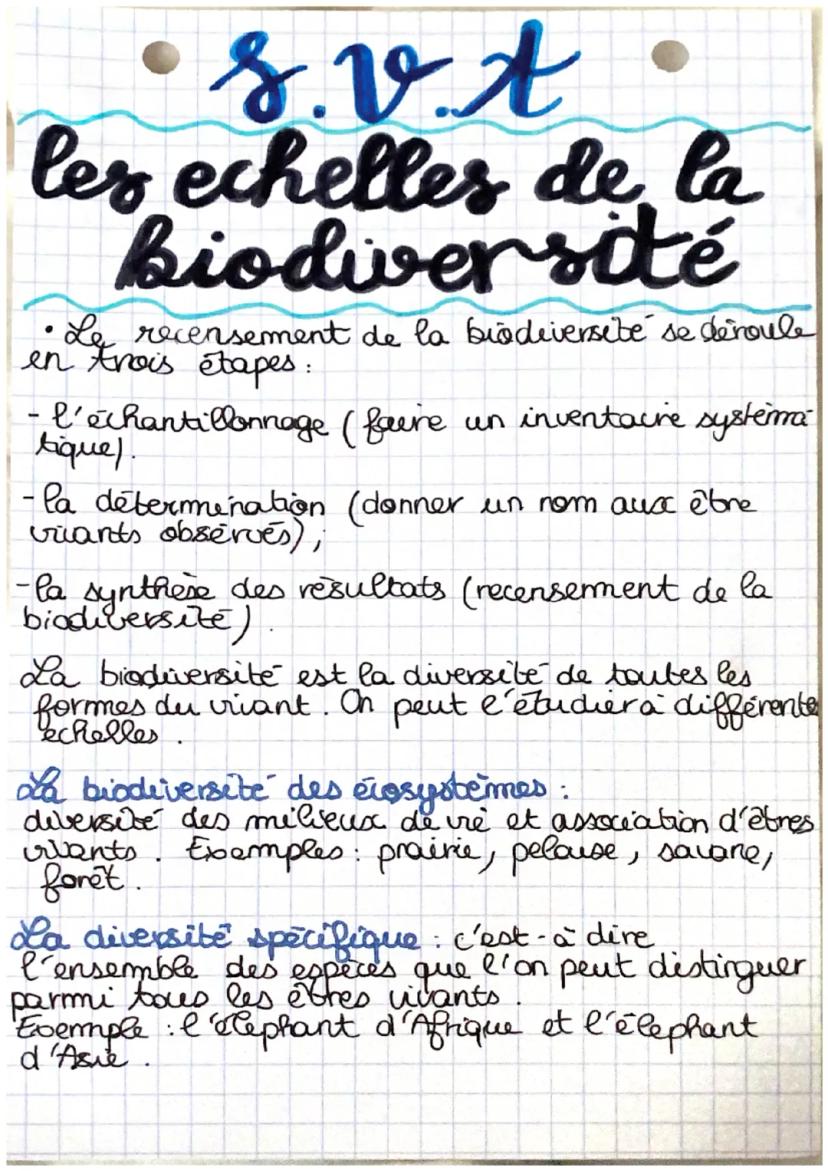 S.V.t
les echelles de la
biodiversité
• Le recensement de la biodiversité se déroule
en trois étapes :
- l'échantillonnage (faire un inventaire systéma-
tique).
- la détermination (donner un nom aux être
vivants observés),
- la synthèse des résultats (recensement de la
biodiversité).
La biodiversité est la diversité de toutes les
formes du vivant. On peut l'étudier à différente
échelles.
La biodiversité des écosystèmes :
diversité des milieux de vie et association d'êtres
vivants. Exemples : prairie, pelouse, savane,
forêt.
La diversité spécifique : c'est-à dire
l'ensemble des espèces que l'on peut distinguer
parmi tous les êtres vivants.
Exemple : l'éléphant d'Afrique et l'éléphant
d'Asie.